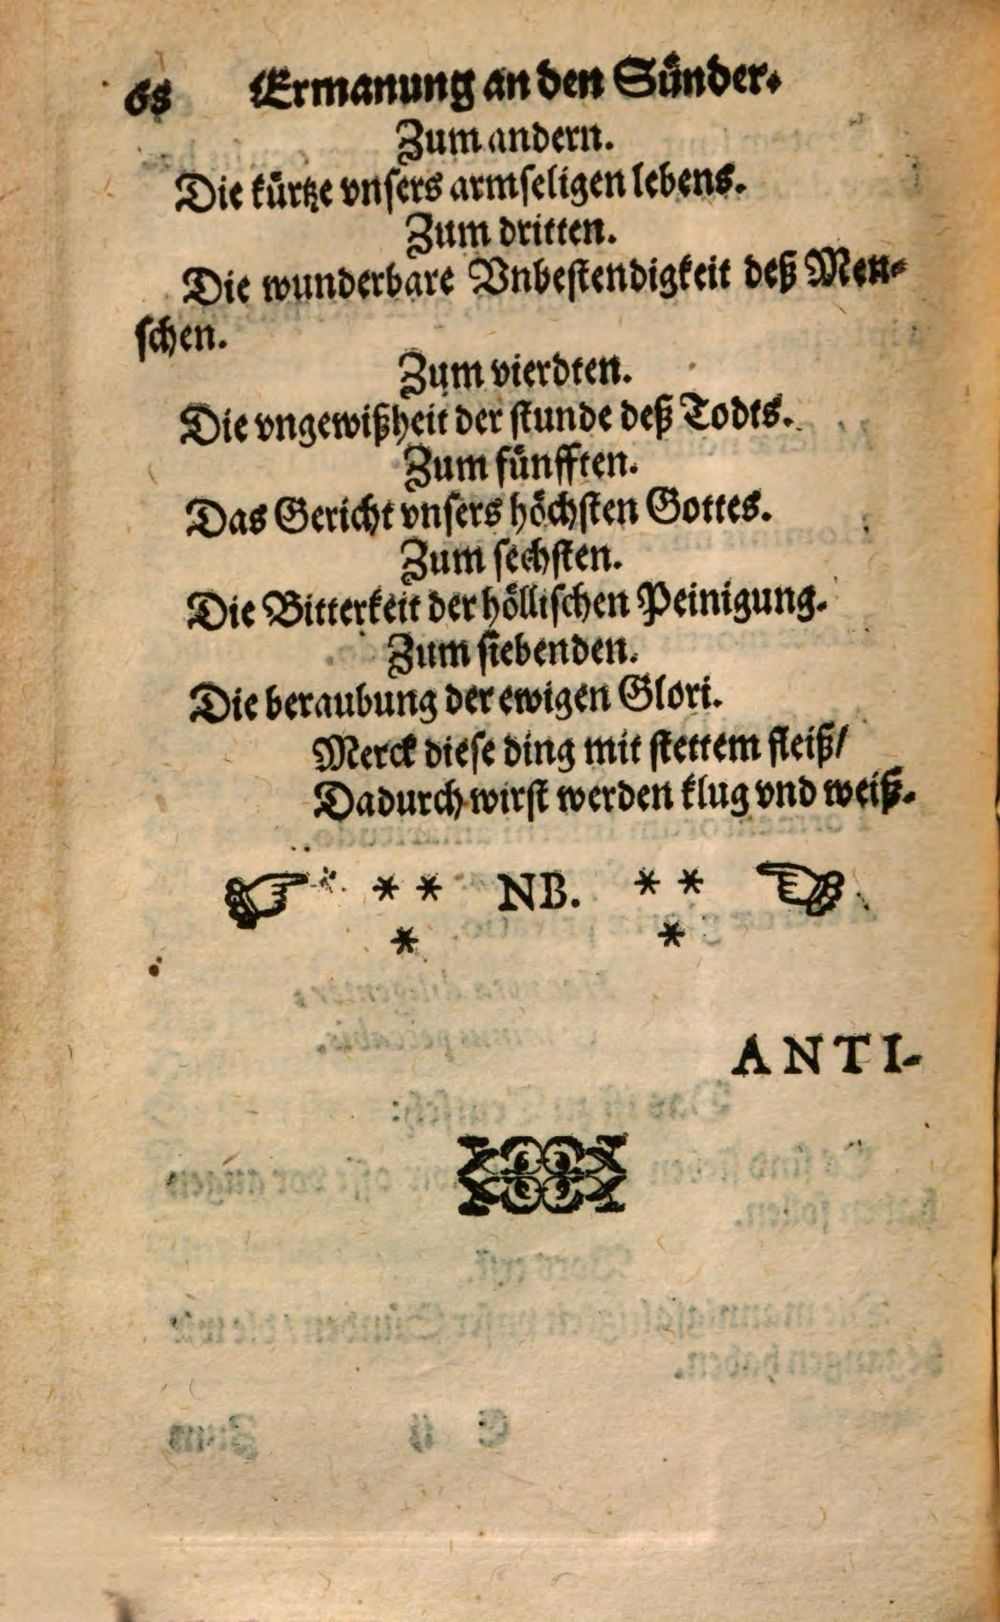 68 Ermanung an den Sünder.
Zum andern.
Die kürtze vnsers armseligen lebens.
Zum dritten.
Die wunderbare Vnbestendigkeit deß Men-
schen.
Zum vierdten.
Die vngewißheit der stunde deß Todts.
Zum fünfften.
Das Gericht vnsers höchsten Gottes.
Zum sechsten.
Die Bitterkeit der höllischen Peinigung.
Zum siebenden.
Die beraubung der ewigen Glori.
Merck diese ding mit stettem fleiß/
Dadurch wirst werden klug vnd weiß.
☞ * * NB. * * ☜
* *
ANTI-